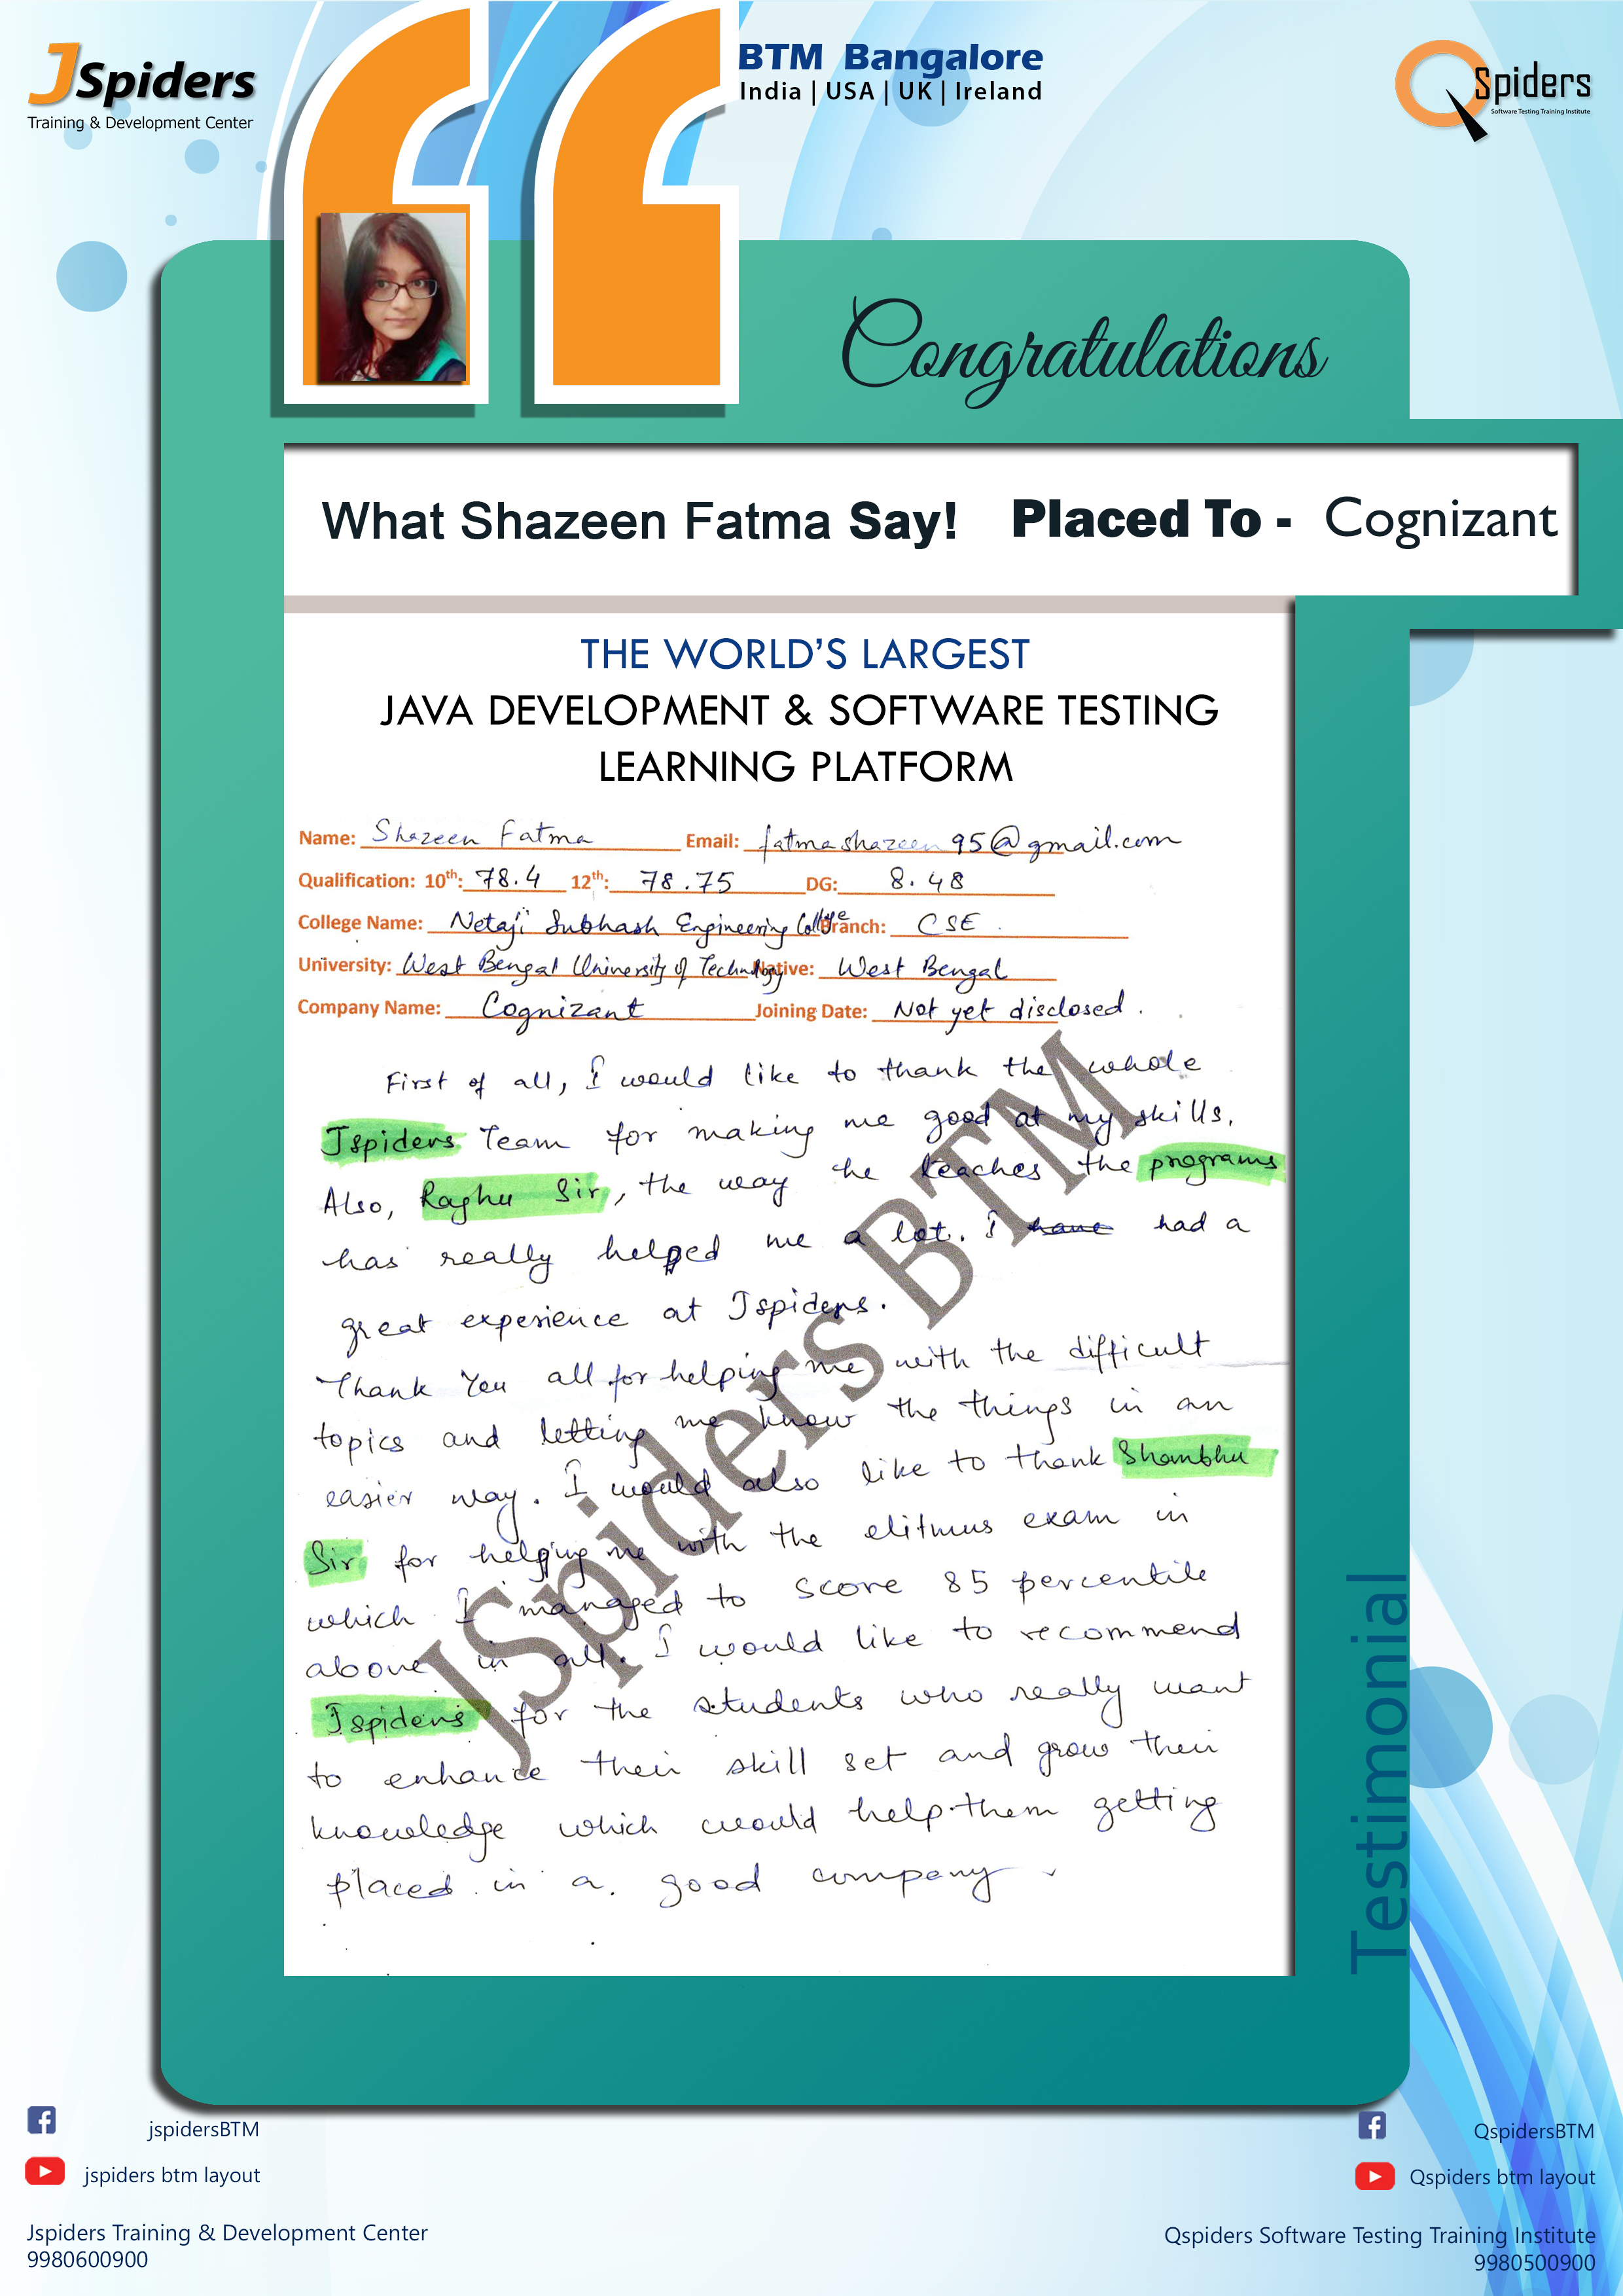 JSpiders
Training & Development Center
BTM Bangalore
India | USA | UK | Ireland
QSpiders
Software Testing Training Institute
Congratulations
What Shazeen Fatma Say! Placed To - Cognizant
THE WORLD'S LARGEST
JAVA DEVELOPMENT & SOFTWARE TESTING
LEARNING PLATFORM
Name: Shazeen Fatma Email: fatmashazeen95@gmail.com
Qualification: 10th: 78.4 12th: 78.75 DG: 8.48
College Name: Netaji Subhash Engineering College Branch: CSE
University: West Bengal University of Technology Native: West Bengal
Company Name: Cognizant Joining Date: Not yet disclosed.
First of all, I would like to thank the whole
Jspiders Team for making me good at my skills.
Also, Raghu Sir, the way he teaches the programs
has really helped me a lot. I have had a
great experience at Jspiders.
Thank You all for helping me with the difficult
topics and letting me know the things in an
easier way. I would also like to thank Shambhu
Sir for helping me with the elitmus exam in
which I managed to score 85 percentile
above in all. I would like to recommend
Jspiders for the students who really want
to enhance their skill set and grow their
knowledge which would help them getting
placed in a good company.
JSpiders BTM
Testimonial
jspidersBTM
jspiders btm layout
Jspiders Training & Development Center
9980600900
QspidersBTM
Qspiders btm layout
Qspiders Software Testing Training Institute
9980500900